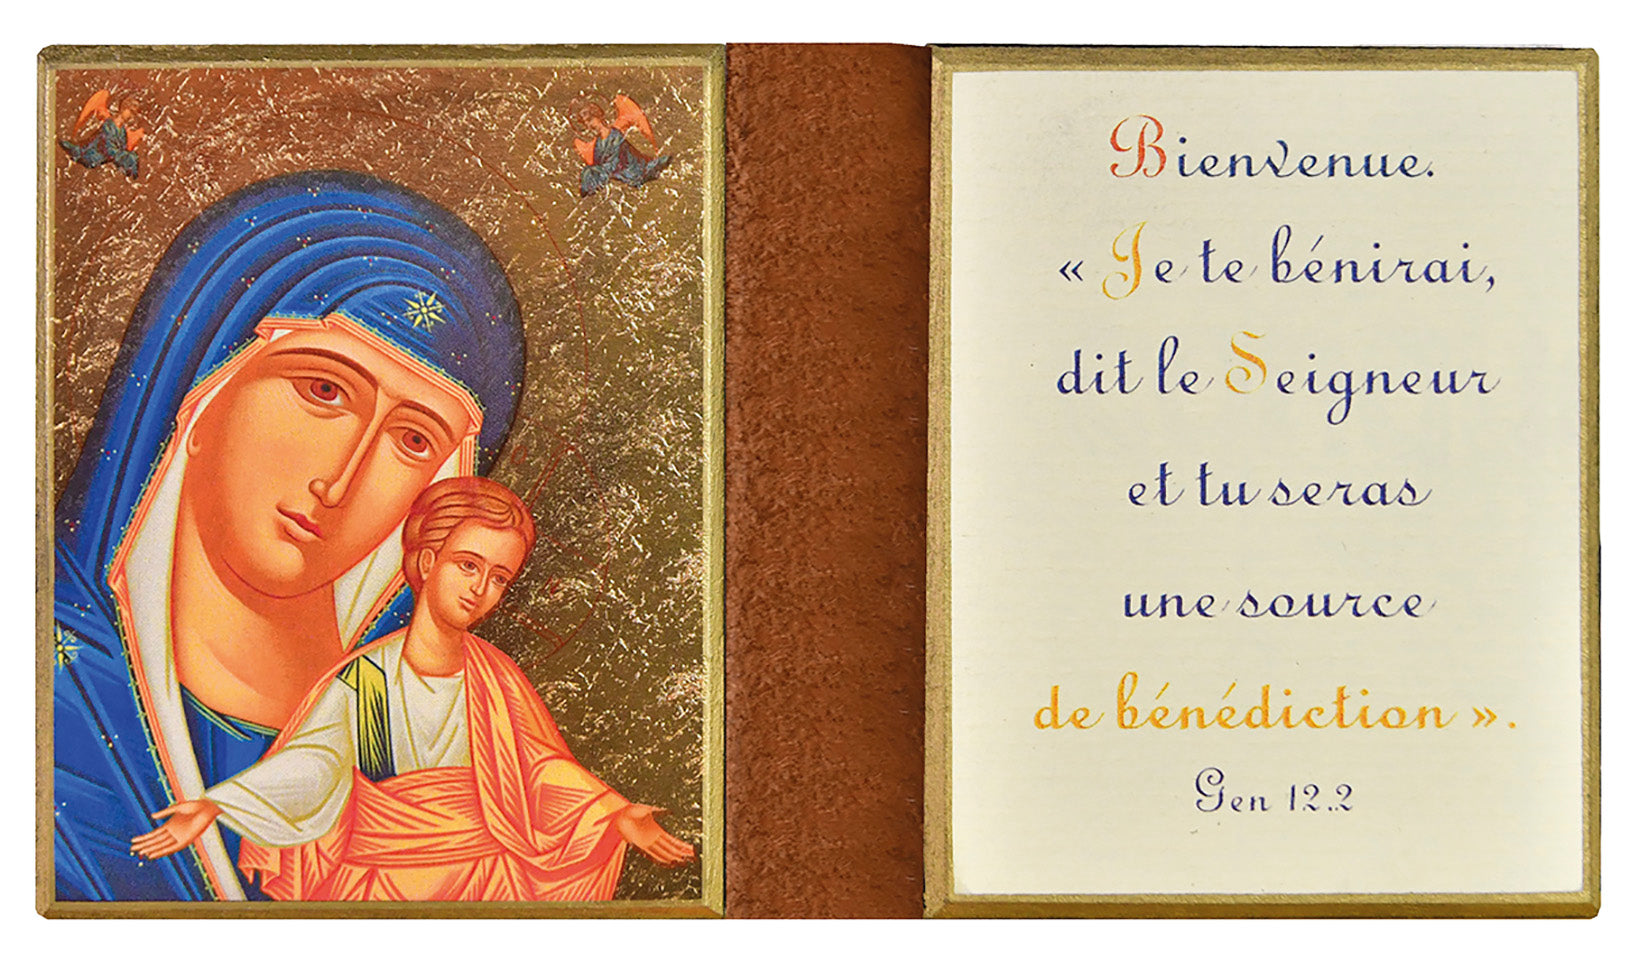 Bienvenue.
« Je te bénirai,
dit le Seigneur
et tu seras
une source
de bénédiction ».
Gen 12.2